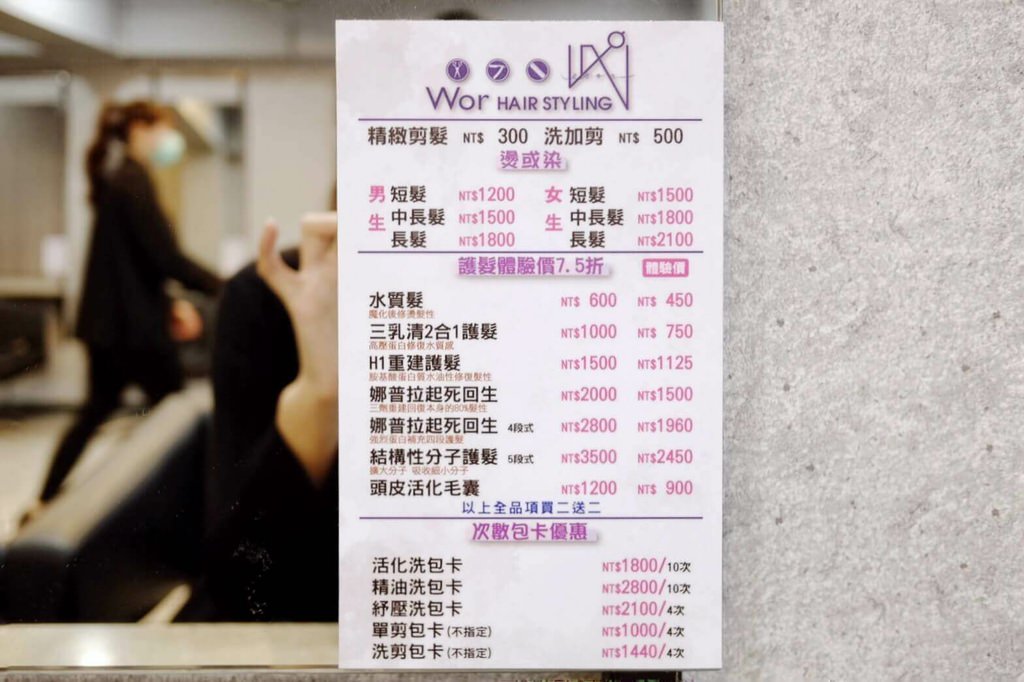 Wor HAIR STYLING
精緻剪髮 NT$ 300 洗加剪 NT$ 500
燙或染
男生 短髮 NT$1200 女生 短髮 NT$1500
中長髮 NT$1500 中長髮 NT$1800
長髮 NT$1800 長髮 NT$2100
護髮體驗價7.5折 體驗價
水質髮 NT$ 600 NT$ 450
魔化後修燙髮性
三乳清2合1護髮 NT$1000 NT$ 750
高壓蛋白修復水質感
H1重建護髮 NT$1500 NT$1125
胺基酸蛋白質水油性修復髮性
娜普拉起死回生 NT$2000 NT$1500
三劑重建回復本身的80%髮性
娜普拉起死回生 4段式 NT$2800 NT$1960
強烈蛋白補充四段護髮
結構性分子護髮 5段式 NT$3500 NT$2450
擴大分子 吸收細小分子
頭皮活化毛囊 NT$1200 NT$ 900
以上全品項買二送二
次數包卡優惠
活化洗包卡 NT$1800/10次
精油洗包卡 NT$2800/10次
紓壓洗包卡 NT$2100/4次
單剪包卡(不指定) NT$1000/4次
洗剪包卡(不指定) NT$1440/4次